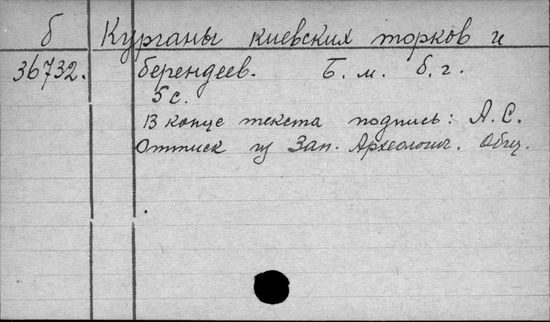 б Курганы киевских торков и
36732. берендеев. Б. м. б. г.
5 с.
В конце текста подпись: А. С.
Оттиск из Зап. Археологич. Общ.